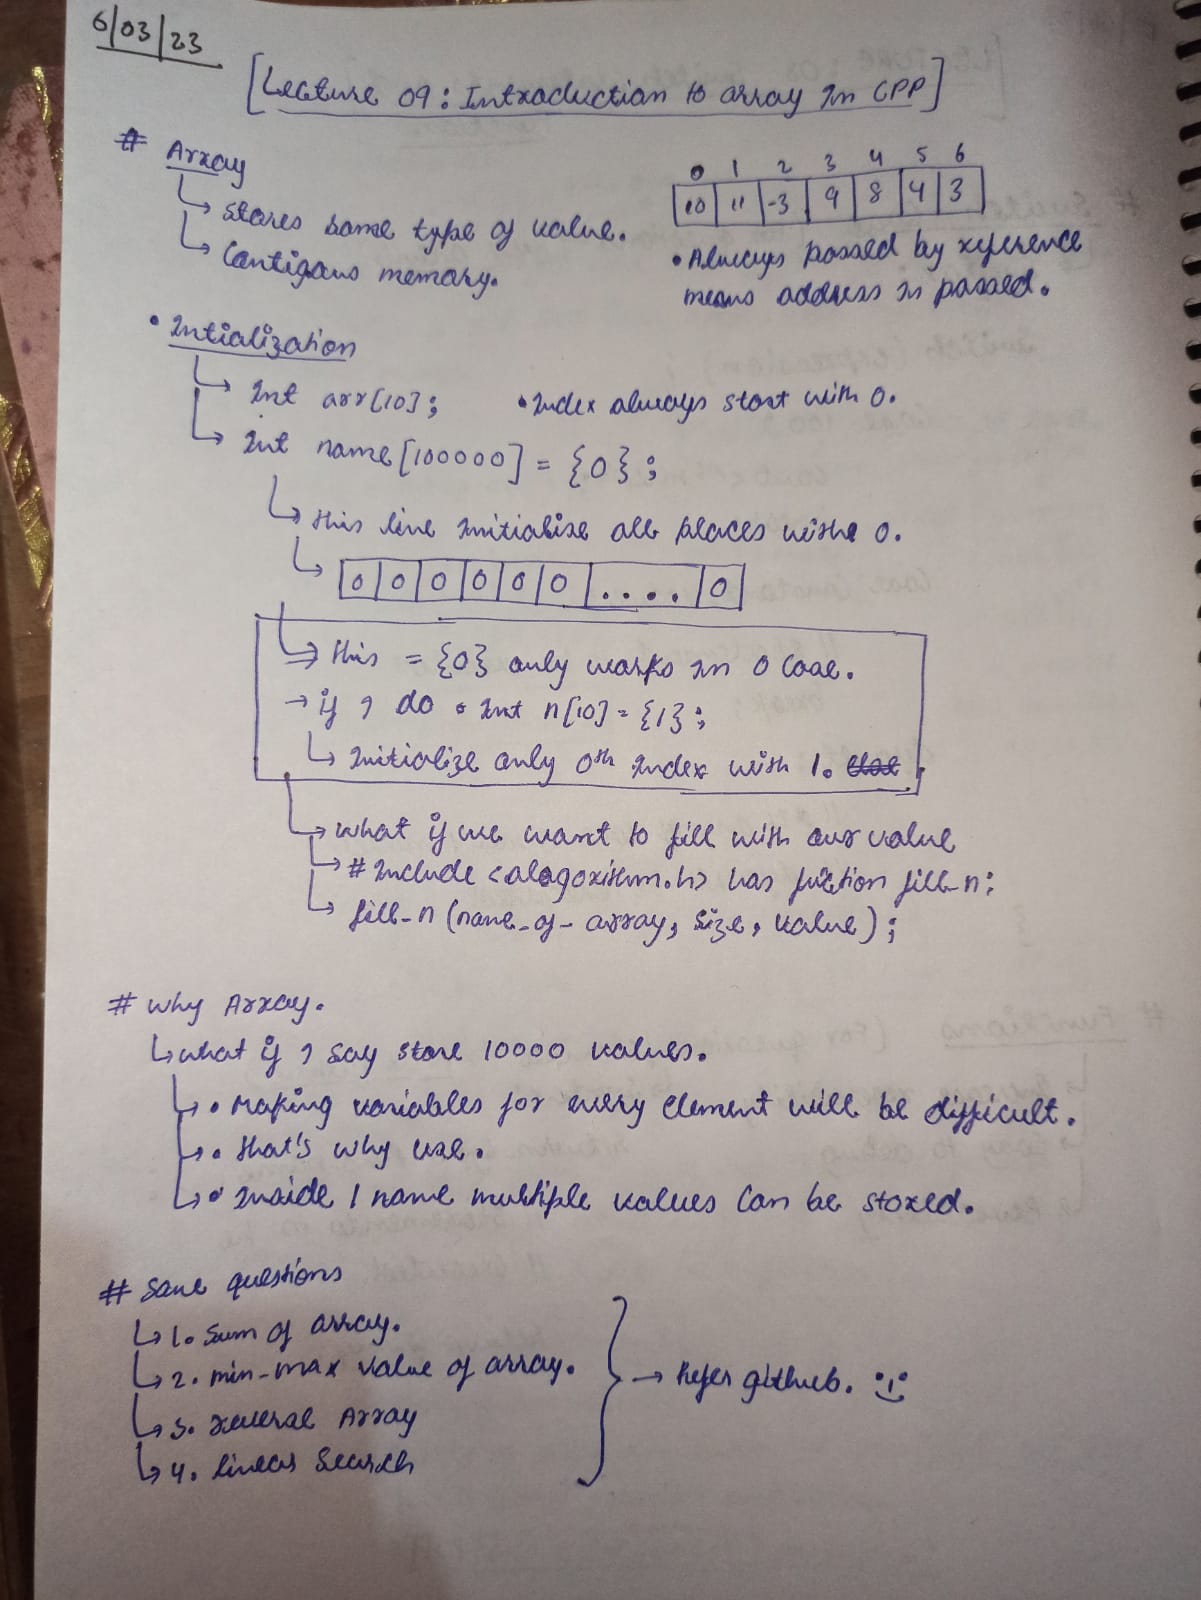 6/03/23
[Lecture 09: Introduction to array In CPP]
# Array
↳ Stores same type of value.
↳ Contigous memory.
0 1 2 3 4 5 6
10 11 -3 9 8 4 3
• Always passed by reference
means address is passed.
• Intialization
↳ Int arr[10];
• Index always start with 0.
↳ Int name[100000] = {0};
↳ this line initialize all places withe 0.
↳ 0 0 0 0 0 0 .... 0
↳ this = {0} only works in 0 Case.
→ if I do • Int n[10] = {1};
↳ Initialize only 0th Index with 1.
↳ what if we want to fill with our value
↳ # Include <alogorithm.h> has fuction fill_n;
↳ fill_n (name_of_array, size, value);
# Why Array.
↳ what if I say store 10000 values.
↳ • Making variables for every Element will be difficult.
↳ • that's why use.
↳ • Inside 1 name multiple values can be stored.
# Some questions
↳ 1. Sum of array.
↳ 2. min-max value of array.
↳ 3. reverse Array
↳ 4. linear Search
→ Refer github.